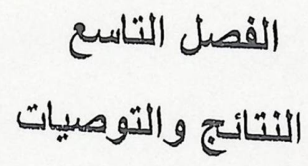 الفصل التاسع
النتائج والتوصيات